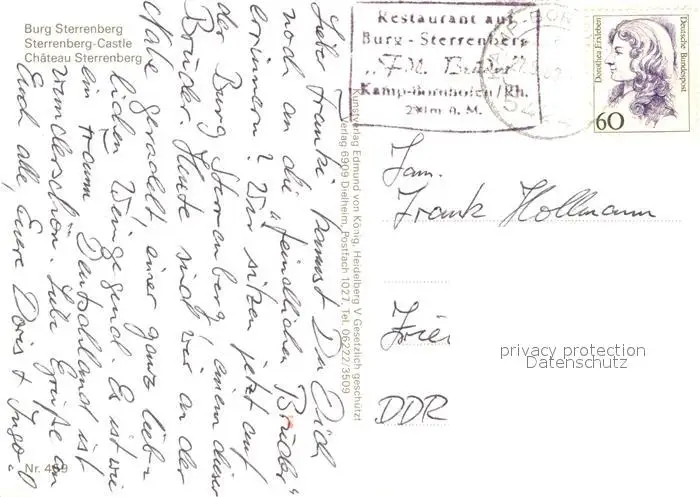 Burg Sterrenberg
Sterrenberg-Castle
Château Sterrenberg
Liebe Frankis, kannst Du Dich
noch an die "feindlichen Brüder"
erinnern? Wir sitzen jetzt auf
der Burg Sterrenberg, einem dieser
Brüder. Heute sind wir an der
Nahe geradelt, einer ganz lieb-
lichen Weingegend. Es ist wie
ein Traum. Deutschland ist
wunderschön. Liebe Grüße an
Euch alle, Eure Doris + Ingo
Nr. 489
Kunstverlag Edmund von König, Heidelberg V Gesetzlich geschützt
Verlag 6909 Dielheim, Postfach 1027, Tel. 06222/3509
Restaurant auf
Burg - Sterrenberg
Kamp-Bornhofen/Rh.
Dorothea Erxleben
Deutsche Bundespost
60
Fam.
Frank Hollmann
DDR
privacy protection
Datenschutz